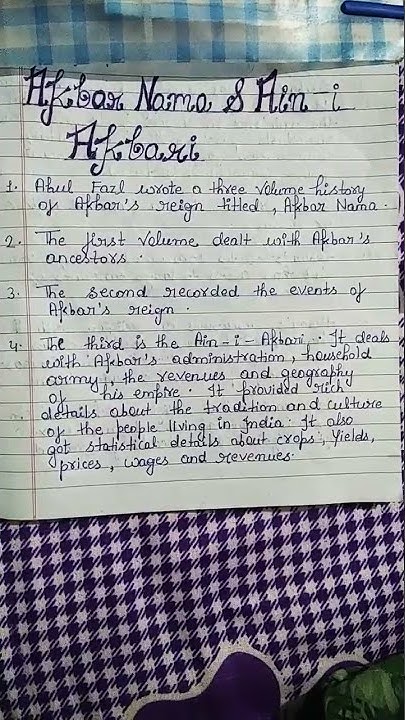 Akbar Nama & Ain-i
Akbari
1. Abul Fazl wrote a three volume history
of Akbar's reign titled, Akbar Nama.
2. The first volume dealt with Akbar's
ancestors.
3. The second recorded the events of
Akbar's reign.
4. The third is the Ain-i-Akbari. It deals
with Akbar's administration, household
army, the revenues and geography
of his empire. It provided rich
details about the tradition and culture
of the people living in India. It also
got statistical details about crops, Yields,
prices, wages and revenues.